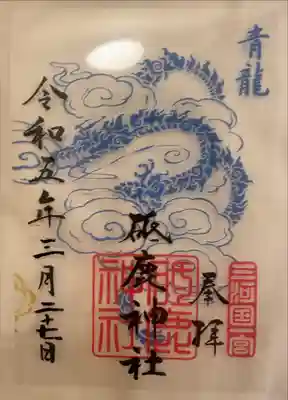 青龍
三河国一宮
奉拝
砥鹿神社
砥鹿神社
令和五年三月二十七日